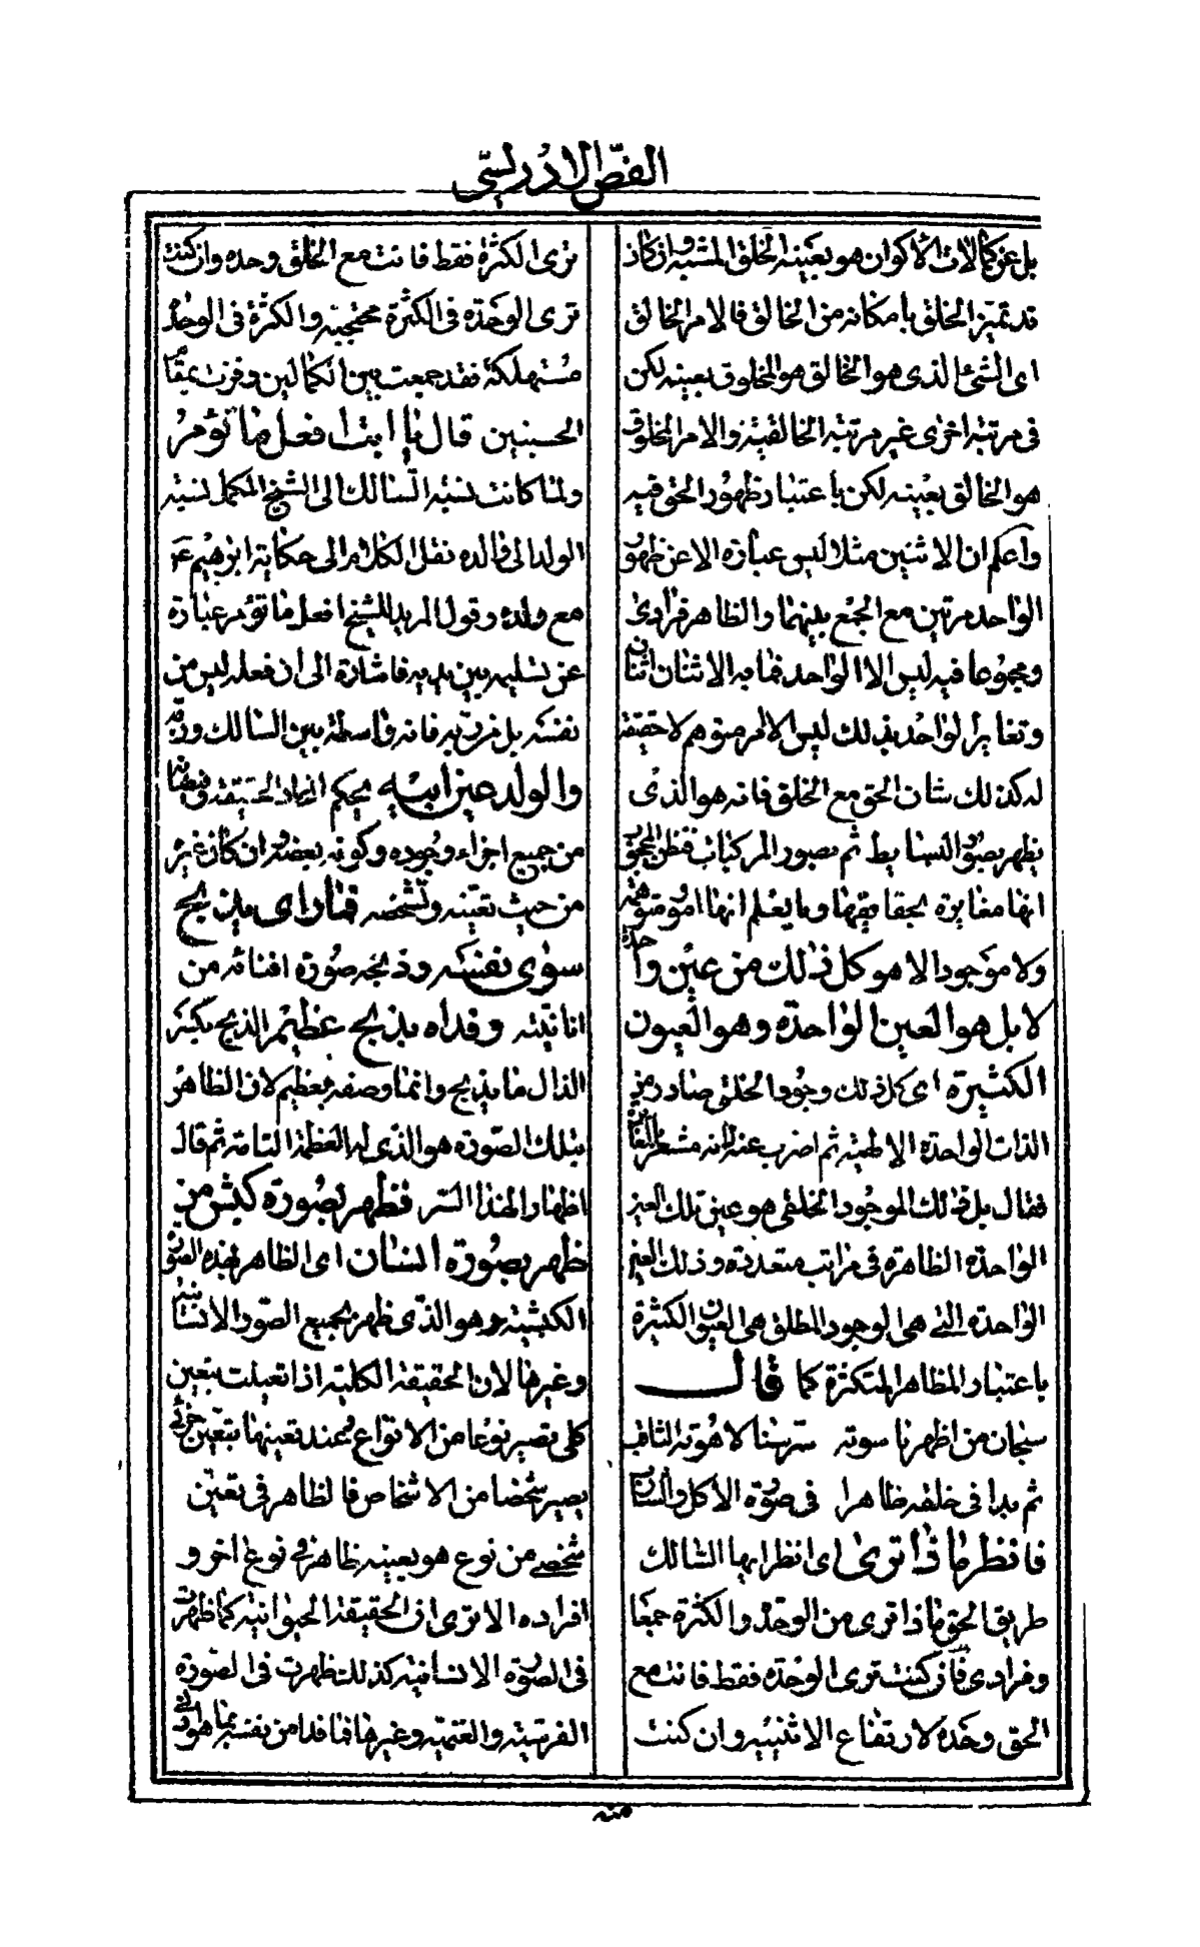 الفصّ الادريسّى
بل عن كمالات الأكوان هو بعينه الخلق المشبه وان كان
قد تميّز الخلق بامكانه من الخالق فالامر الخالق
اى الشئ الذى هو الخالق هو المخلوق بعينه لكن
فى مرتبة اخرى غير مرتبة الخالقيّة والامر المخلوق
هو الخالق بعينه لكن باعتبار ظهور الحق فيه
واعلم ان الاثنين مثلا ليس عبارة الا عن ظهور
الواحد مرتين مع الجمع بينهما والظاهر فرادى
ومجموعا فيه ليس الا الواحد فما به الاثنان اثنان
وتغاير الواحد بذلك ليس الا امر متوهم لا حقيقة
له كذلك شان الحق مع الخلق فانه هو الذى
يظهر بصور البسايط ثم بصور المركبات فظن المحجوب
انها مغايرة بحقايقها وما يعلم انها امور متوهمة
ولا موجود الا هو كل ذلك من عين واحدة
لا بل هو العين الواحدة وهو العيون
الكثيرة اى كل ذلك وجود الخلقى صادر من
الذات الواحدة الالهية ثم اضرب عنه لانه مشعر بالمغايرة
فقال بل ذلك الموجود الخلقى هو عين تلك العين
الواحدة الظاهرة فى مراتب متعددة وذلك العين
الواحدة التى هى الوجود المطلق هى العيون الكثيرة
باعتبار المظاهر المتكثرة كما قال
سبحان من اظهر ناسوته سرّ سنا لاهوته الثاقب
ثم بدا فى خلقه ظاهرا فى صورة الاكل والشارب
فانظر ما ذا ترى اى انظر ايها السالك
طريق الحق ماذا ترى من الوحدة والكثرة جمعًا
وفرادى فان كنت ترى الوحدة فقط فانت مع
الحق وحده لارتفاع الاثنينيه وان كنت
ترى الكثرة فقط فانت مع الخلق وحده وان كنت
ترى الوحدة فى الكثرة محتجبة والكثرة فى الوحدة
مستهلكة فقد جمعت بين الكمالين وفزت بمقام
الحسنيين قال يا ابت افعل ما تؤمر
ولما كانت نسبة السالك الى الشيخ المكمل نسبة
الولد الى والده نقل الكلام الى حكاية ابرهيم عم
مع ولده وقول المريد للشيخ افعل ما تؤمر عبارة
عن تسليمه بين يديه فاشارة الى ان فعله ليس من
نفسه بل من ربه فانه واسطة بين السالك وربه
والولد عين ابيه بحكم اتحاد الحقيقة وفيضانه
من جميع اجزاء وجوده وكونه بعضه وان كان غيره
من حيث تعيّنه وتشخصه فما راى يذبح
سوى نفسه وذبحه صورة افنائه من
انانيته وفداه بذبح عظيم الذبح بكسر
الذال ما يذبح وانما وصفه بعظيم لان الظاهر
بتلك الصورة هو الذى له العظمة التامة ثم قال
اظهارا لهذا السر فظهر بصورة كبش من
ظهر بصورة انسان اى الظاهر بهذه الصورة
الكبشية هو الذى ظهر بجميع الصور الانسانية
وغيرها لان الحقيقة الكلية اذا تعينت بتعين
كلى تصير نوعا من الانواع وعند تعينها بتعين جزئى
يصير شخصا من الاشخاص فالظاهر فى تعين
شخصى من نوع هو بعينه ظاهر فى نوع اخر و
افراده الا ترى ان الحقيقة الحيوانية كما ظهرت
فى الصورة الانسانية كذلك ظهرت فى الصورة
الفرسية والغنمية وغيرها فما فدا من نفسه بما هو ادنى
منه